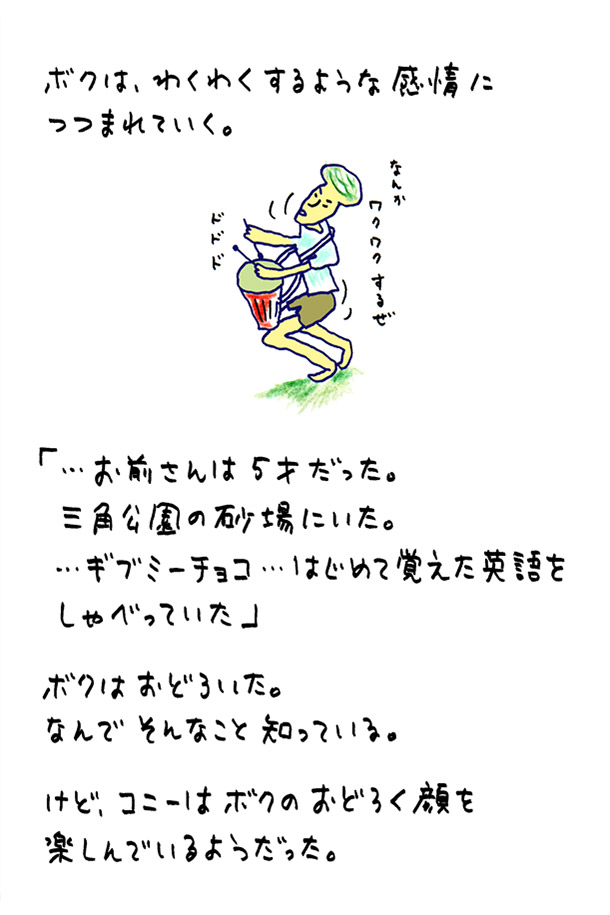 ボクは、わくわくするような感情に
つつまれていく。
なんか
ワクワクするぜ
ドドド
「…お前さんは5才だった。
三角公園の砂場にいた。
…ギブミーチョコ…はじめて覚えた英語を
しゃべっていた」
ボクはおどろいた。
なんでそんなこと知っている。
けど、コニーはボクのおどろく顔を
楽しんでいるようだった。